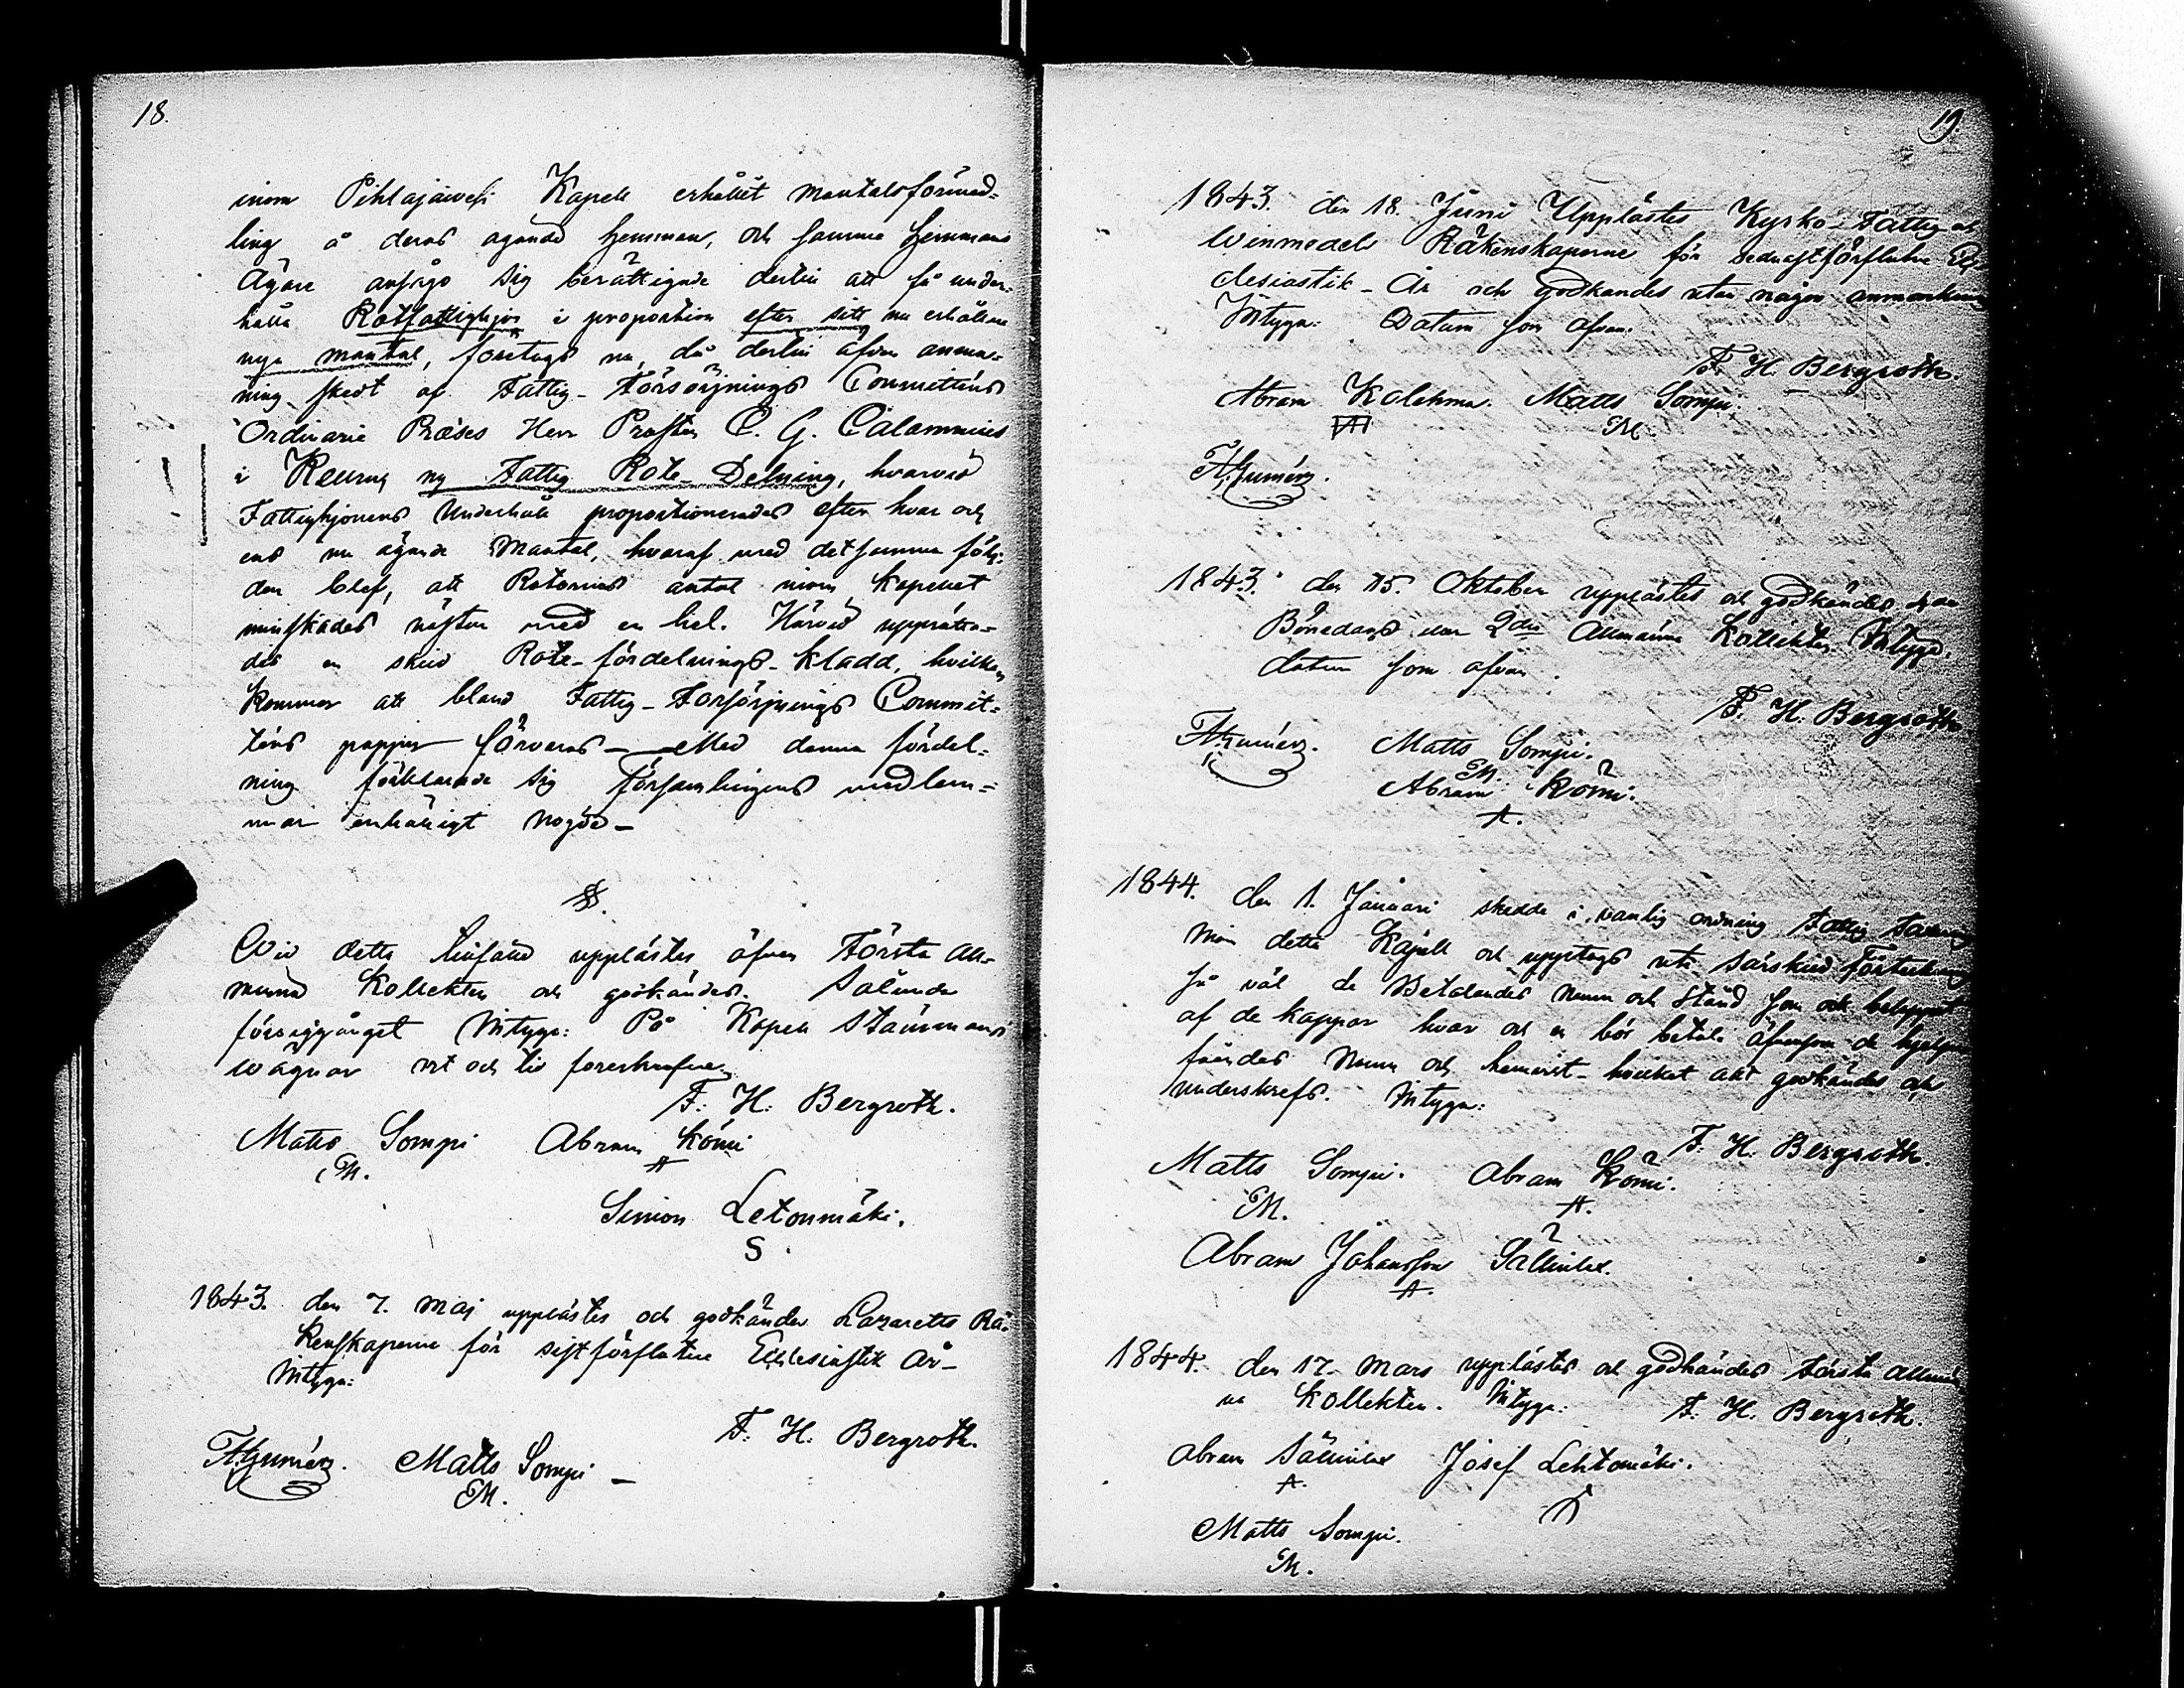 18.
inom Pihlajawesi Kapell erhållit mantalsförmed=
ling å deras ägande hemman, och samma hemmans
Ägare ansågo sig berättigade dertill att få under=
hålla Rotfattighjon i proportion efter sitt nu erhållna
nya mantal, företogs nu, då dertill äfven anma=
ning skedt af Fattig-Försörjnings Committéens
Ordinarie Præses Herr Prosten C. G. Calamnius
i Keuru ny Fattig Rote-Delning, hvarvid
Fattighjonens Underhåll proportionerades efter hvar och
ens nu ägande Mantal, hvaraf med detsamma följ=
den blef, att Rotornas antal inom Kapellet
minskades nästan med en hel. Härvid upprätta=
des en skild Rote-fördelnings-Kladd, hvilken
kommer att bland Fattig-Försörjnings Commit=
téens papper förvaras — Med denna fördel=
ning förklarade sig Församlingens medlem=
mar enhälligt nögde —
§.
Vid detta tillfälle upplästes äfven Första All=
männa Kollekten och godkändes. Sålunda
föreigågget Intyga: På Kapell Stämmans
wägnar ort och tid föreskrefne
F. H. Bergroth.
Matts Sompi Abram Kömi
M. A
Simon Letonmäki.
S.
1843. den 7. Maj upplästes och godkändes Lazaretts Rä=
kenskaperne för sistförflutne Ecclesiastik År —
Intyga:
F. H. Bergroth.
Matts Sompi —
M.
19
1843. den 18. Juni Upplästes Kyrko-Fattig och
Winmedels Räkenskaperne för sednastförflutne Ec=
clesiastik-År och godkändes utan någon anmärkning
Intyga: Datum som ofvan.
F. H. Bergroth.
Abram Kalahma. Matts Sompi.
M.
1843. den 15. Oktober upplästes och godkändes
Bönedags eller 2dra Allmänna Kollekten Intyga.
datum som ofvan.
F. H. Bergroth
Matts Sompi.
M.
Abram Kömi.
A.
1844. den 1. Januari skedde i vanlig ordning Fattig Taxering
inom detta Kapell och upptogs uti särskild Förteckning
så väl de Betalandes Namn och Stånd som ock beloppet
af de kappar hvar och en bör betala äfvensom de hjelpe
fåendes Namn och hemvist – hvilket allt godkändes och
underskrefs. Intyga:
F. H. Bergroth.
Matts Sompi. Abram Kömi.
M. A.
Abram Johansson Sällinlex.
A.
1844. den 17. Mars upplästes och godkändes första allmän
na Kollekten. Intyga: F. H. Bergroth.
Abram Sällinlex Josef Lehtomäki.
A.
Matts Sompi.
M.